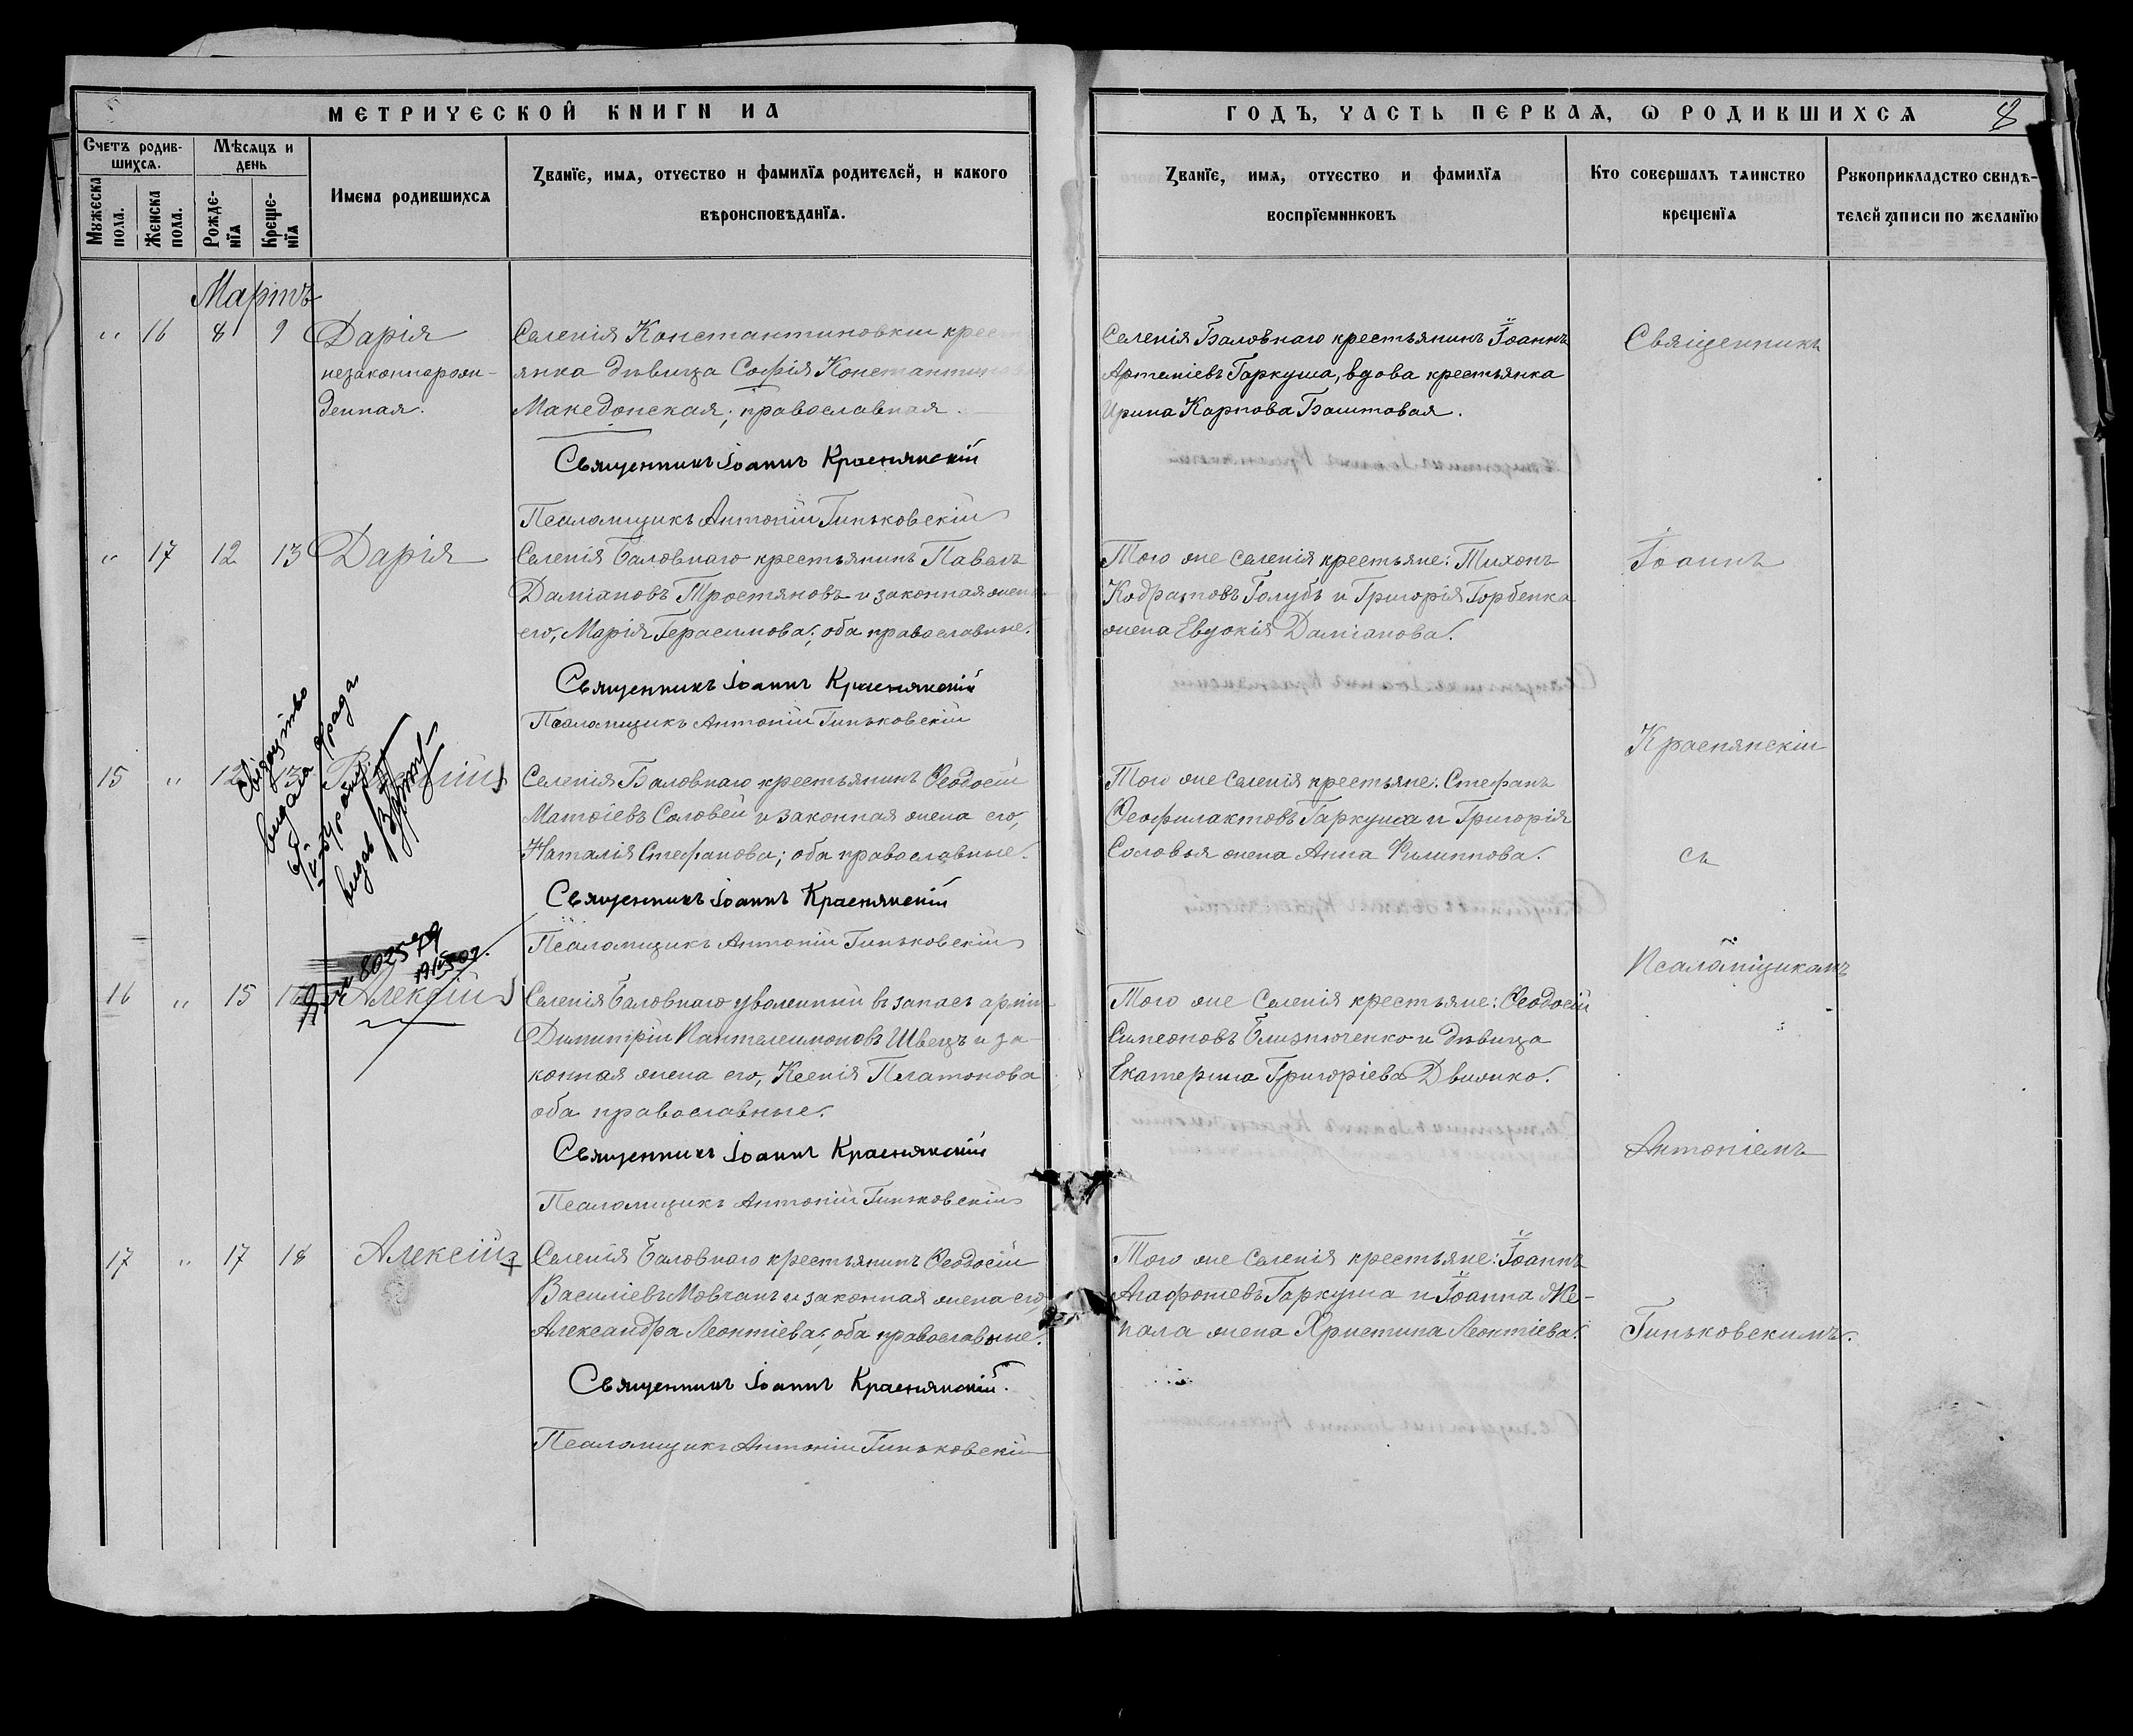 МЕТРИЧЕСКОЙ КНИГИ НА
ГОДЪ, ЧАСТЬ ПЕРВАѦ, Ѡ РОДИВШИХСѦ
8
Счетъ родив-
шихсѧ.
Мѣсѧцъ и
день
Мꙋжеска
пола.
Женска
пола.
Рожде-
нїѧ
Креще-
нїѧ
Имена родившихсѧ
Званїе, имѧ, отчество и фамилїѧ родителей, и какого
вѣроисповѣданїѧ.
Званїе, имѧ, отчество и фамилїѧ
воспрїемниковъ
Кто совершалъ таинство
крещенїѧ
Рꙋкоприкладство свидѣ-
телей записи по желанїю
Мартъ
" 16 8 9 Дарія
незаконнорож-
денная.
Селенія Константиновки крест
янка дѣвица Софія Константинова
Македонская; православная.
Священникъ Іоаннъ Краснянскій
Псаломщикъ Антоній Гиньковскій
Селенія Баловнаго крестьянинъ Іоаннъ
Артеміевъ Гаркуша, вдова крестьянка
Ирина Карпова Баштовая.
Священникъ
" 17 12 13 Дарія
Селенія Баловнаго крестьянинъ Павелъ
Даміановъ Тростяновъ и законная жена
его, Марія Герасимова; оба православные.
Священникъ Іоаннъ Краснянскій
Псаломщикъ Антоній Гиньковскій
Того же селенія крестьяне: Тихонъ
Кодратовъ Голубъ и Григорія Горбенка
жена Евдокія Даміанова.
Іоаннъ
Краснянскій
15 " 12 13
Селенія Баловнаго крестьянинъ Ѳеодосій
Матѳіевъ Соловей и законная жена его,
Наталія Стефанова; оба православные.
Священникъ Іоаннъ Краснянскій
Псаломщикъ Антоній Гиньковскій
Того же селенія крестьяне: Стефанъ
Ѳеофилактовъ Гаркуша и Григорія
Соловья жена Анна Филиппова.
съ
Псаломщикомъ
802579
16 " 15 Алексій
Селенія Баловнаго уволенный въ запасъ арміи
Димитрій Пантелеимоновъ Швецъ и за-
конная жена его, Ксенія Платонова
оба православные.
Священникъ Іоаннъ Краснянскій
Псаломщикъ Антоній Гиньковскій
Того же селенія крестьяне: Ѳеодосій
Симеоновъ Близнюченко и дѣвица
Екатерина Григоріева Движко.
Антоніемъ
17 " 17 18 Алексій
Селенія Баловнаго крестьянинъ Ѳеодосій
Василіевъ Мовчанъ и законная жена его,
Александра Леонтіева; оба православные.
Священникъ Іоаннъ Краснянскій.
Псаломщикъ Антоній Гиньковскій
Того же селенія крестьяне: Іоаннъ
Агафоневъ Гаркуша и Іоанна Же-
пала жена Христина Леонтіева.
Гиньковскимъ.